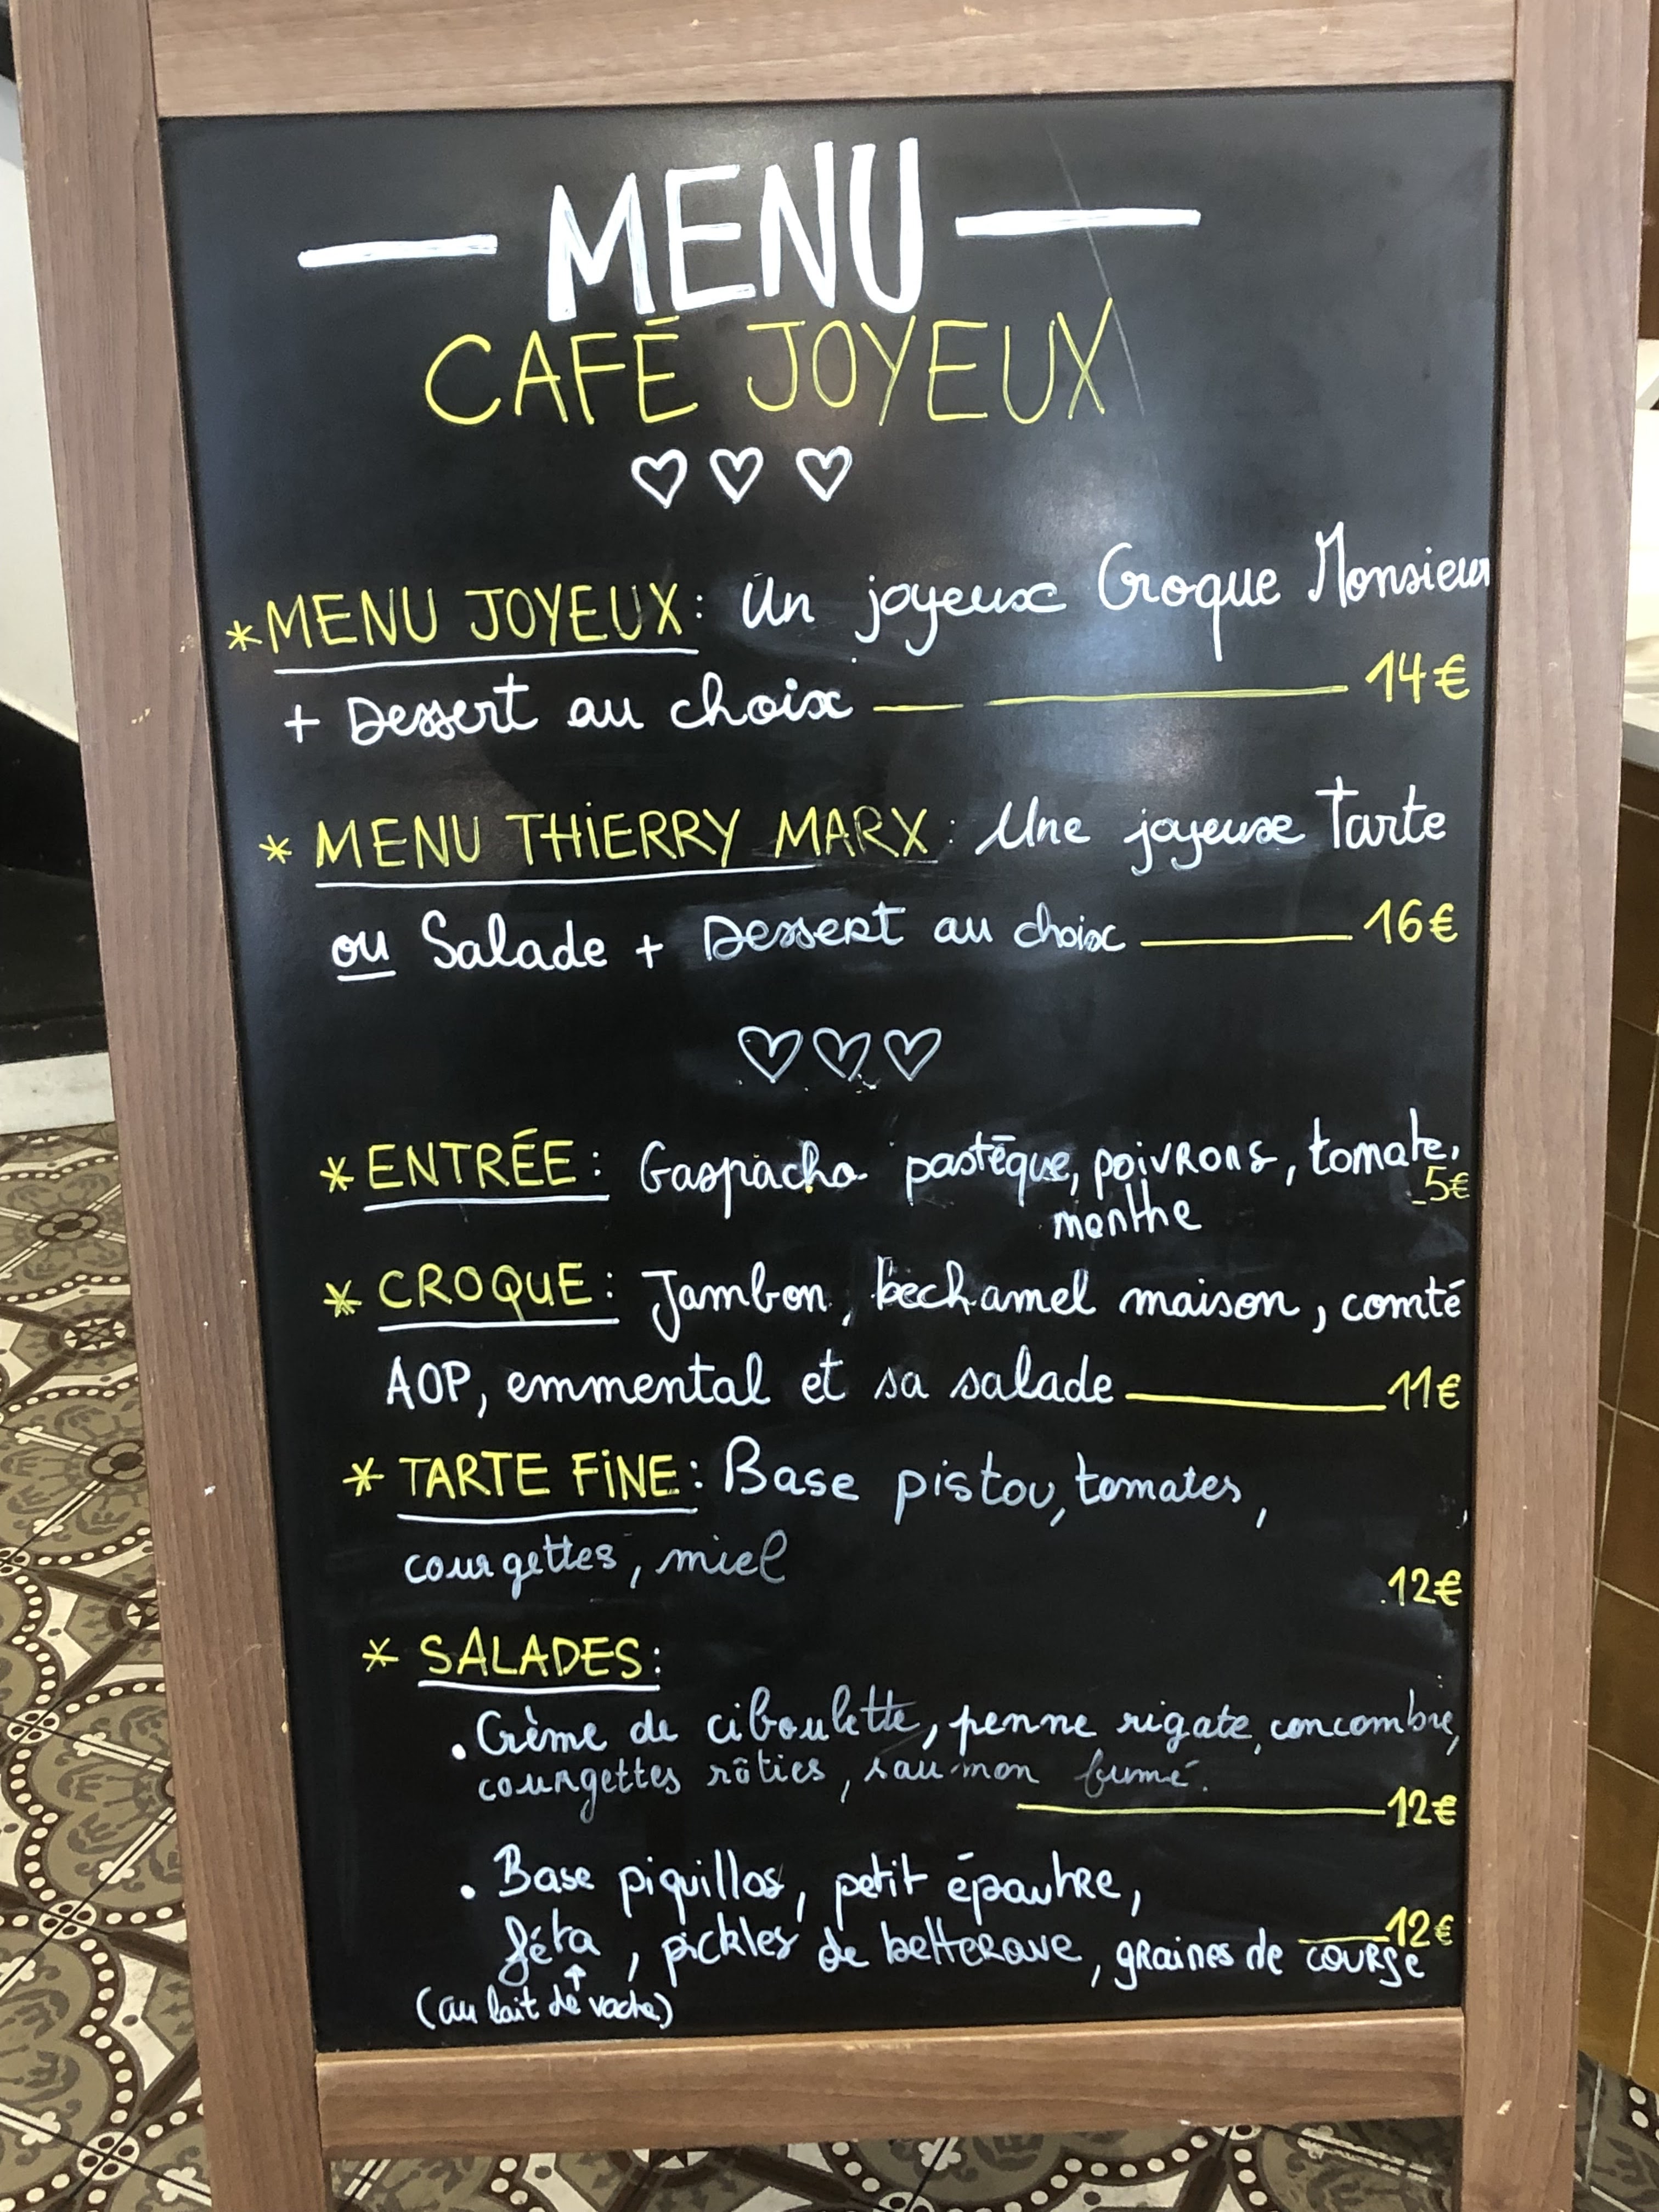 MENU
CAFÉ JOYEUX
*MENU JOYEUX: Un joyeux Croque Monsieur
+ Dessert au choix 14€
* MENU THIERRY MARX: Une joyeuse Tarte
ou Salade + Dessert au choix 16€
* ENTRÉE: Gaspacho pastèque, poivrons, tomate,
5€
menthe
* CROQUE: Jambon, bechamel maison, comté
AOP, emmental et sa salade 11€
* TARTE FINE: Base pistou, tomates,
courgettes, miel
12€
* SALADES:
. Crème de ciboulette, penne rigate, concombre,
courgettes rôties, saumon fumé.
12€
. Base piquillos, petit épautre,
12€
féta, pickles de betterave, graines de courge
(au lait de vache)